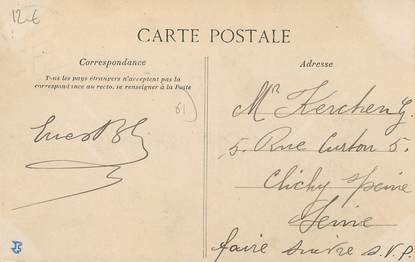 12€
CARTE POSTALE
Correspondance
Tous les pays étrangers n'acceptent pas la
correspondance au recto. se renseigner à la Poste
Adresse
61
Mr Kerchen G.
5. Rue Curton 5.
Clichy Seine
Seine
faire suivre S.V.P.